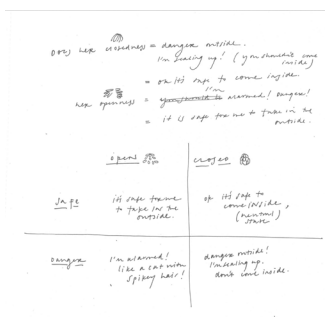 Does her closedness = danger outside.
I'm sealing up! (you shouldn't come inside)
= or it's safe to come inside.
her openness = I'm alarmed! Danger!
= it is safe for me to take in the outside.
open closed
safe
it's safe for me to take in the outside.
or it's safe to come inside, (neutral) state
Danger
I'm alarmed!
like a cat with spikey hair!
danger outside!
I'm sealing up.
don't come inside.